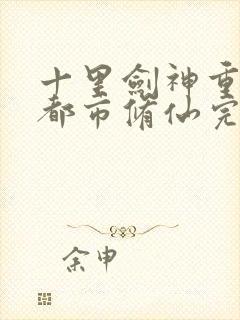 十里劍神重
都市脩仙完
余申